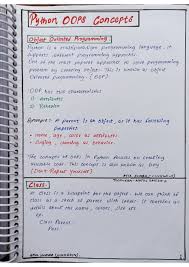 Python OOPs Concepts
Object Oriented Programming
Python is a multiparadigm programming language, it
supports different programming approaches.
One of the most popular approach to solve programming
problem by creating object. This is known as object
oriented programming. (OOP)
OOP has two characteristics
1) attributes
2) Behavior
Synopsis: A parent is an object, as it has following
properties
• name, age, color as attributes
• singing, dancing as behavior
The concepts of OOP in Python focuses on creating
reusable code. This concept is also known as Dry
(Don't Repeat Yourself)
Class:
A class is a blueprint for the object. We can think of
class as a sketch of parrot with labels. It contains all
details about the name, colors, size etc.
eg.
Class Parrot:
Pass